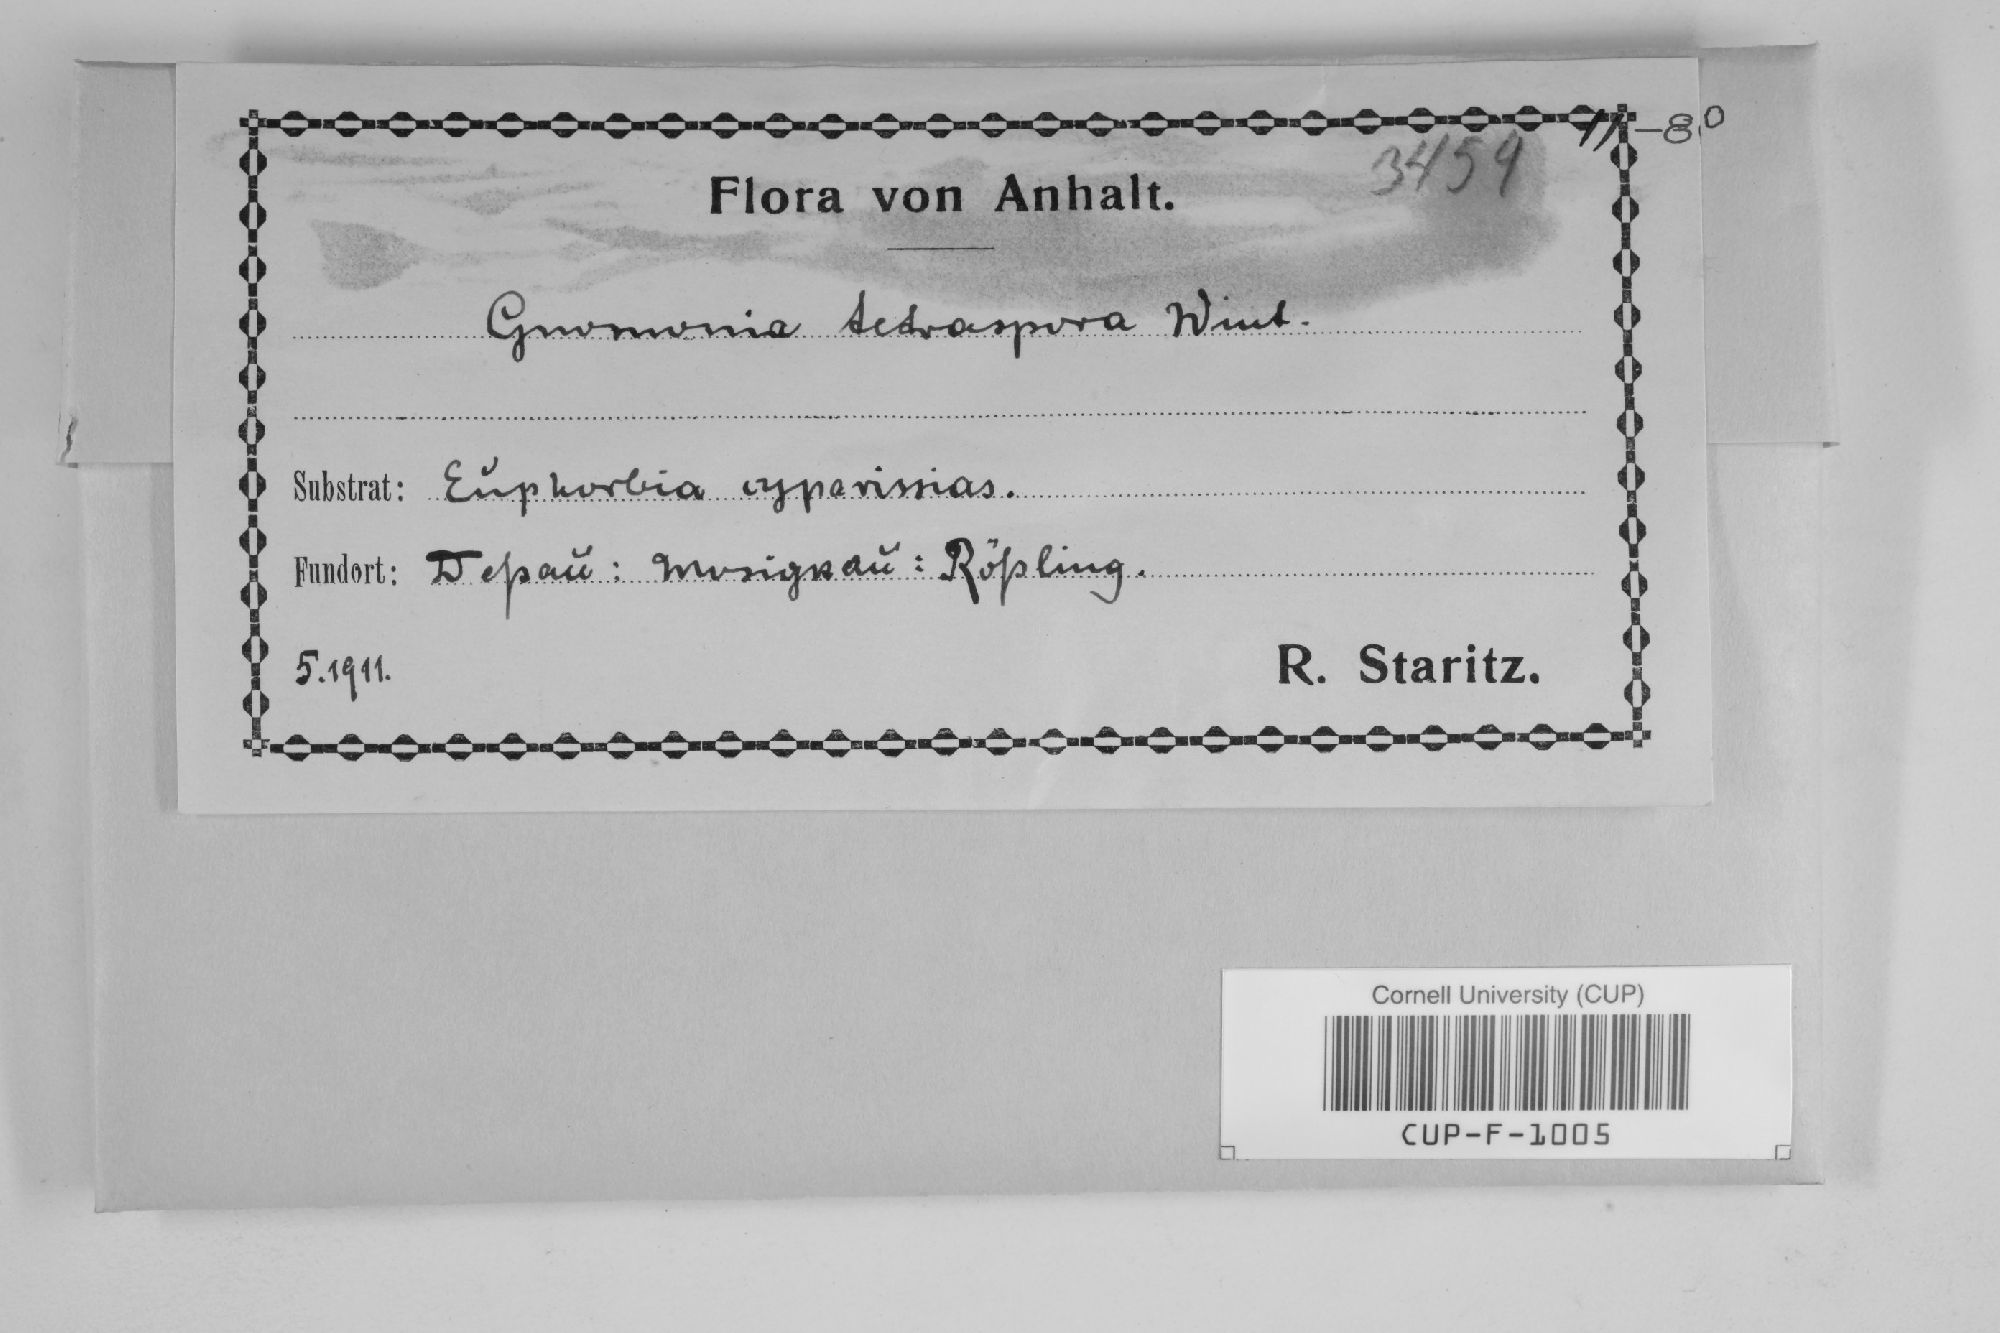 11-80
3459
Flora von Anhalt.
Gnomonia tetraspora Wint.
Substrat: Euphorbia cyparissias.
Fundort: Deßau: Mosigkau: Rößling.
5.1911.
R. Staritz.
Cornell University (CUP)
CUP-F-1005